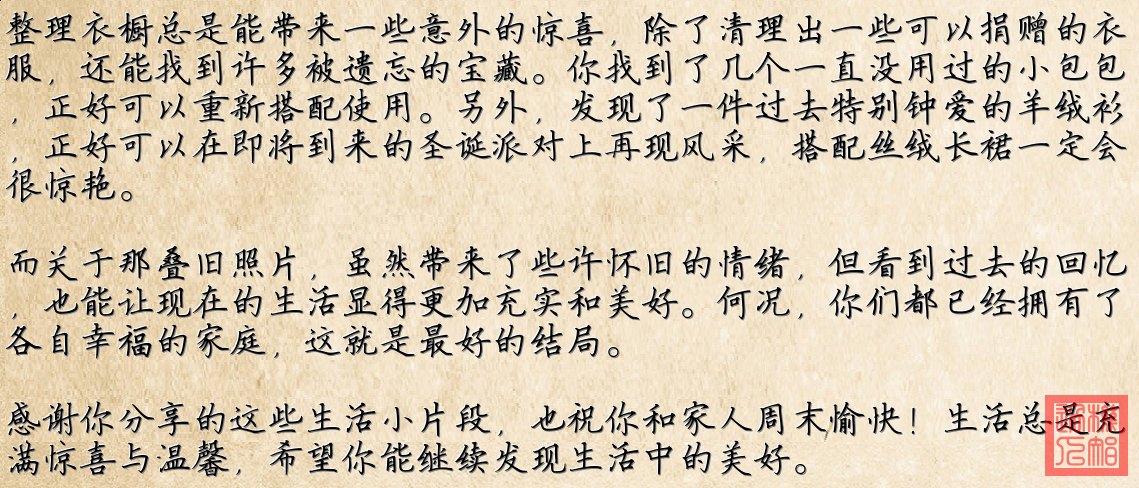 整理衣橱总是能带来一些意外的惊喜，除了清理出一些可以捐赠的衣
服，还能找到许多被遗忘的宝藏。你找到了几个一直没用过的小包包
，正好可以重新搭配使用。另外，发现了一件过去特别钟爱的羊绒衫
，正好可以在即将到来的圣诞派对上再现风采，搭配丝绒长裙一定会
很惊艳。
而关于那叠旧照片，虽然带来了些许怀旧的情绪，但看到过去的回忆
，也能让现在的生活显得更加充实和美好。何况，你们都已经拥有了
各自幸福的家庭，这就是最好的结局。
感谢你分享的这些生活小片段，也祝你和家人周末愉快！生活总是充
满惊喜与温馨，希望你能继续发现生活中的美好。